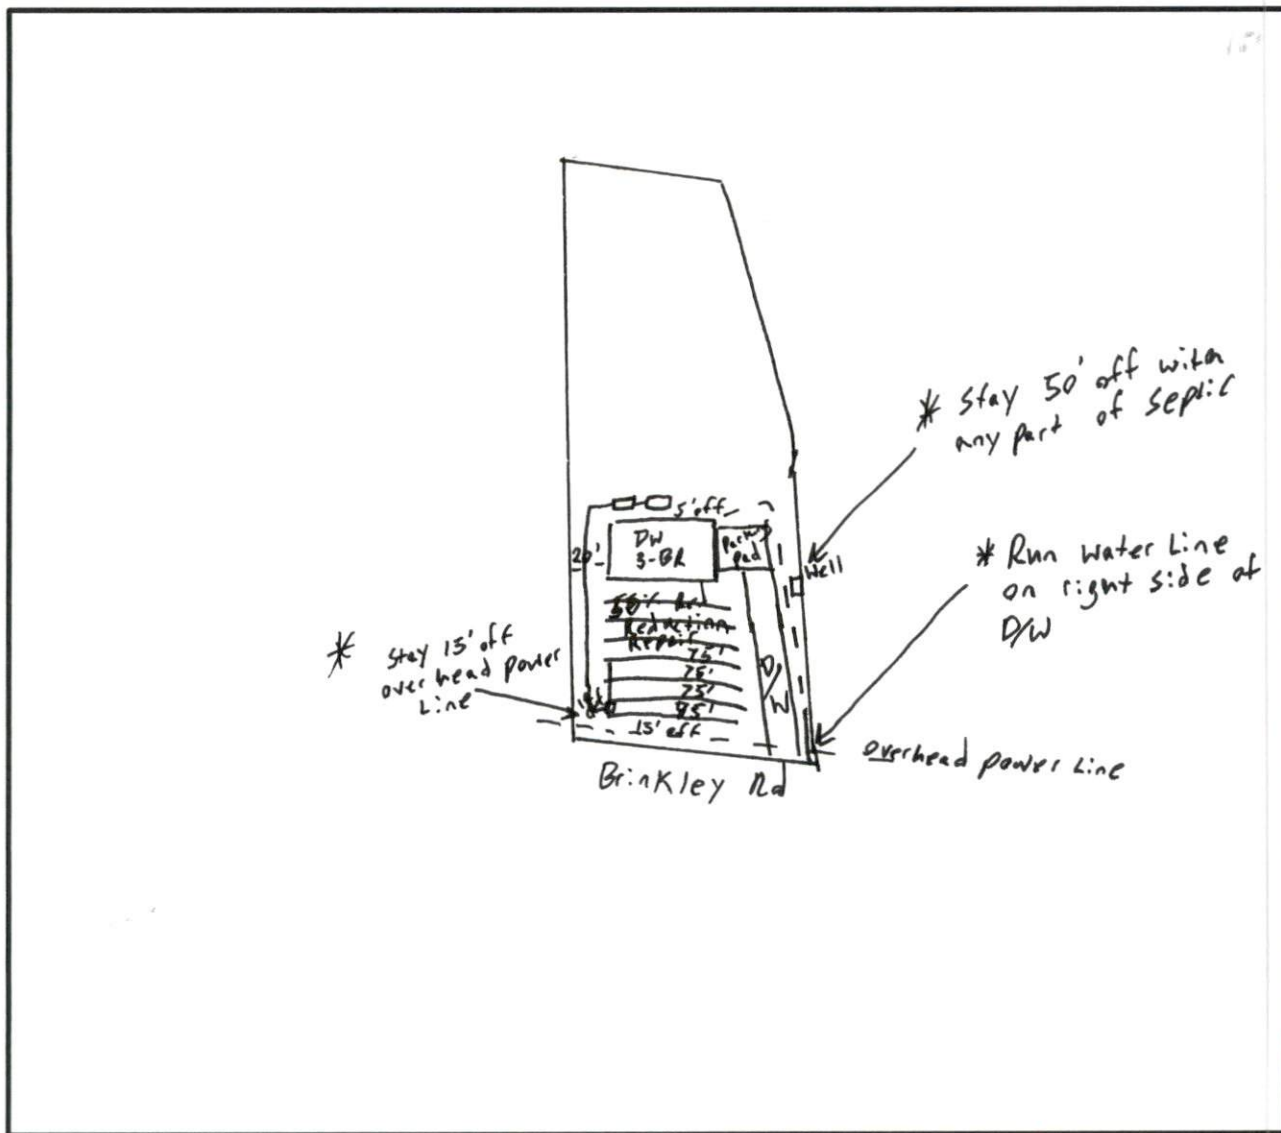 * Stay 50' off with
any part of septic
5' off
DW
3-BR
Parking
Pad
20'
Well
* Run water Line
on right side of
D/W
50%
Reduction
Repair
75'
75'
75'
75'
D/W
* Stay 15' off
over head power
Line
15' off
overhead power Line
Brinkley Rd